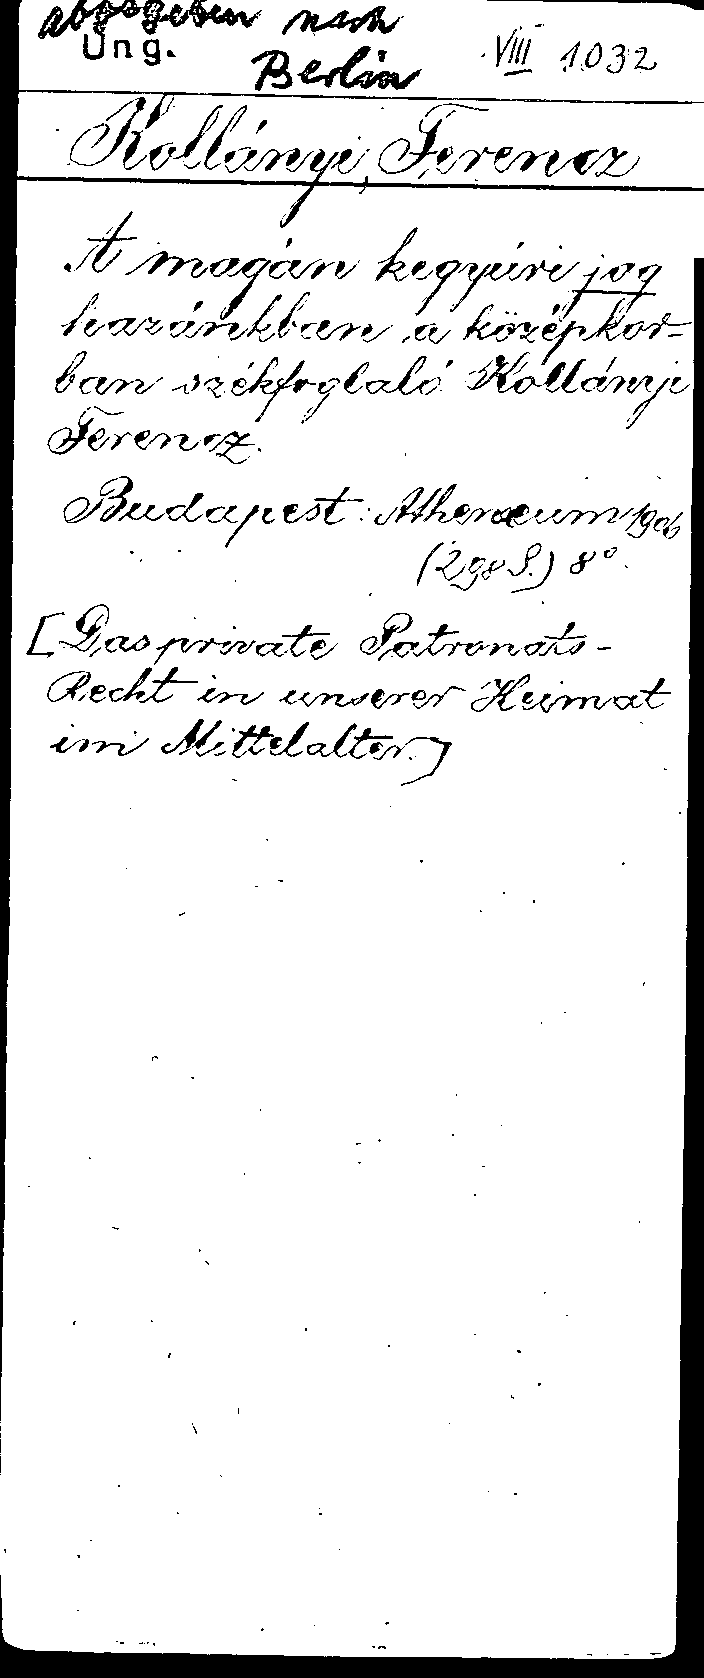 abgegeben nach
Ung.
Berlin
VIII 1032
Kollányi, Ferencz
A magán kegyúri jog
hazánkban a középkor-
ban székfoglaló Kollányi
Ferencz.
Budapest: Athenaeum 1906
(298 S.) 8°.
[Das private Patronats-
Recht in unserer Heimat
im Mittelalter.]